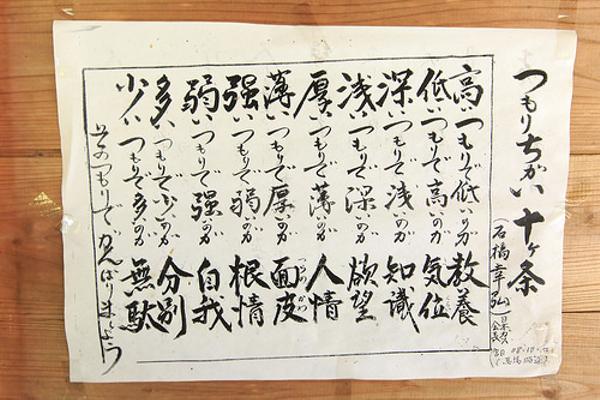 つもりちがい十ヶ条
(石橋幸弘)
高いつもりで低いのが教養
低いつもりで高いのが気位
深いつもりで浅いのが知識
浅いつもりで深いのが欲望
厚いつもりで薄いのが人情
薄いつもりで厚いのが面皮
つらのかわ
强いつもりで弱いのが根情
弱いつもりで强いのが自我
多いつもりで少いのが分別
少いつもりで多いのが無駄
そのつもりでがんばりましょう